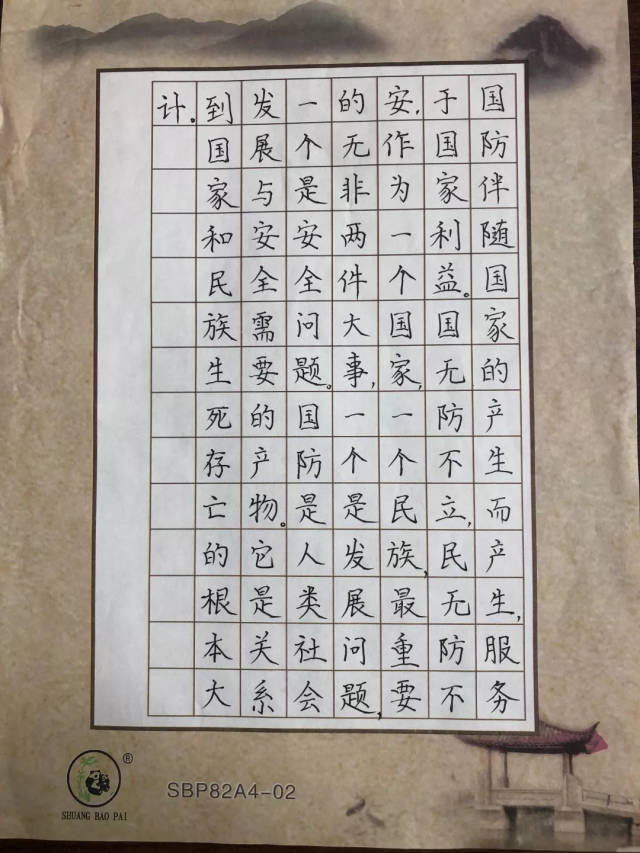 国防伴随国家的产生而产生,服务
于国家利益。国无防不立,民无防不
安,作为一个国家,一个民族,最重要
的无非两件大事,一个是发展问题,
一个是安全问题。国防是人类社会
发展与安全需要的产物。它是关系
到国家和民族生死存亡的根本大
计。
SHUANG BAO PAI
®
SBP82A4-02